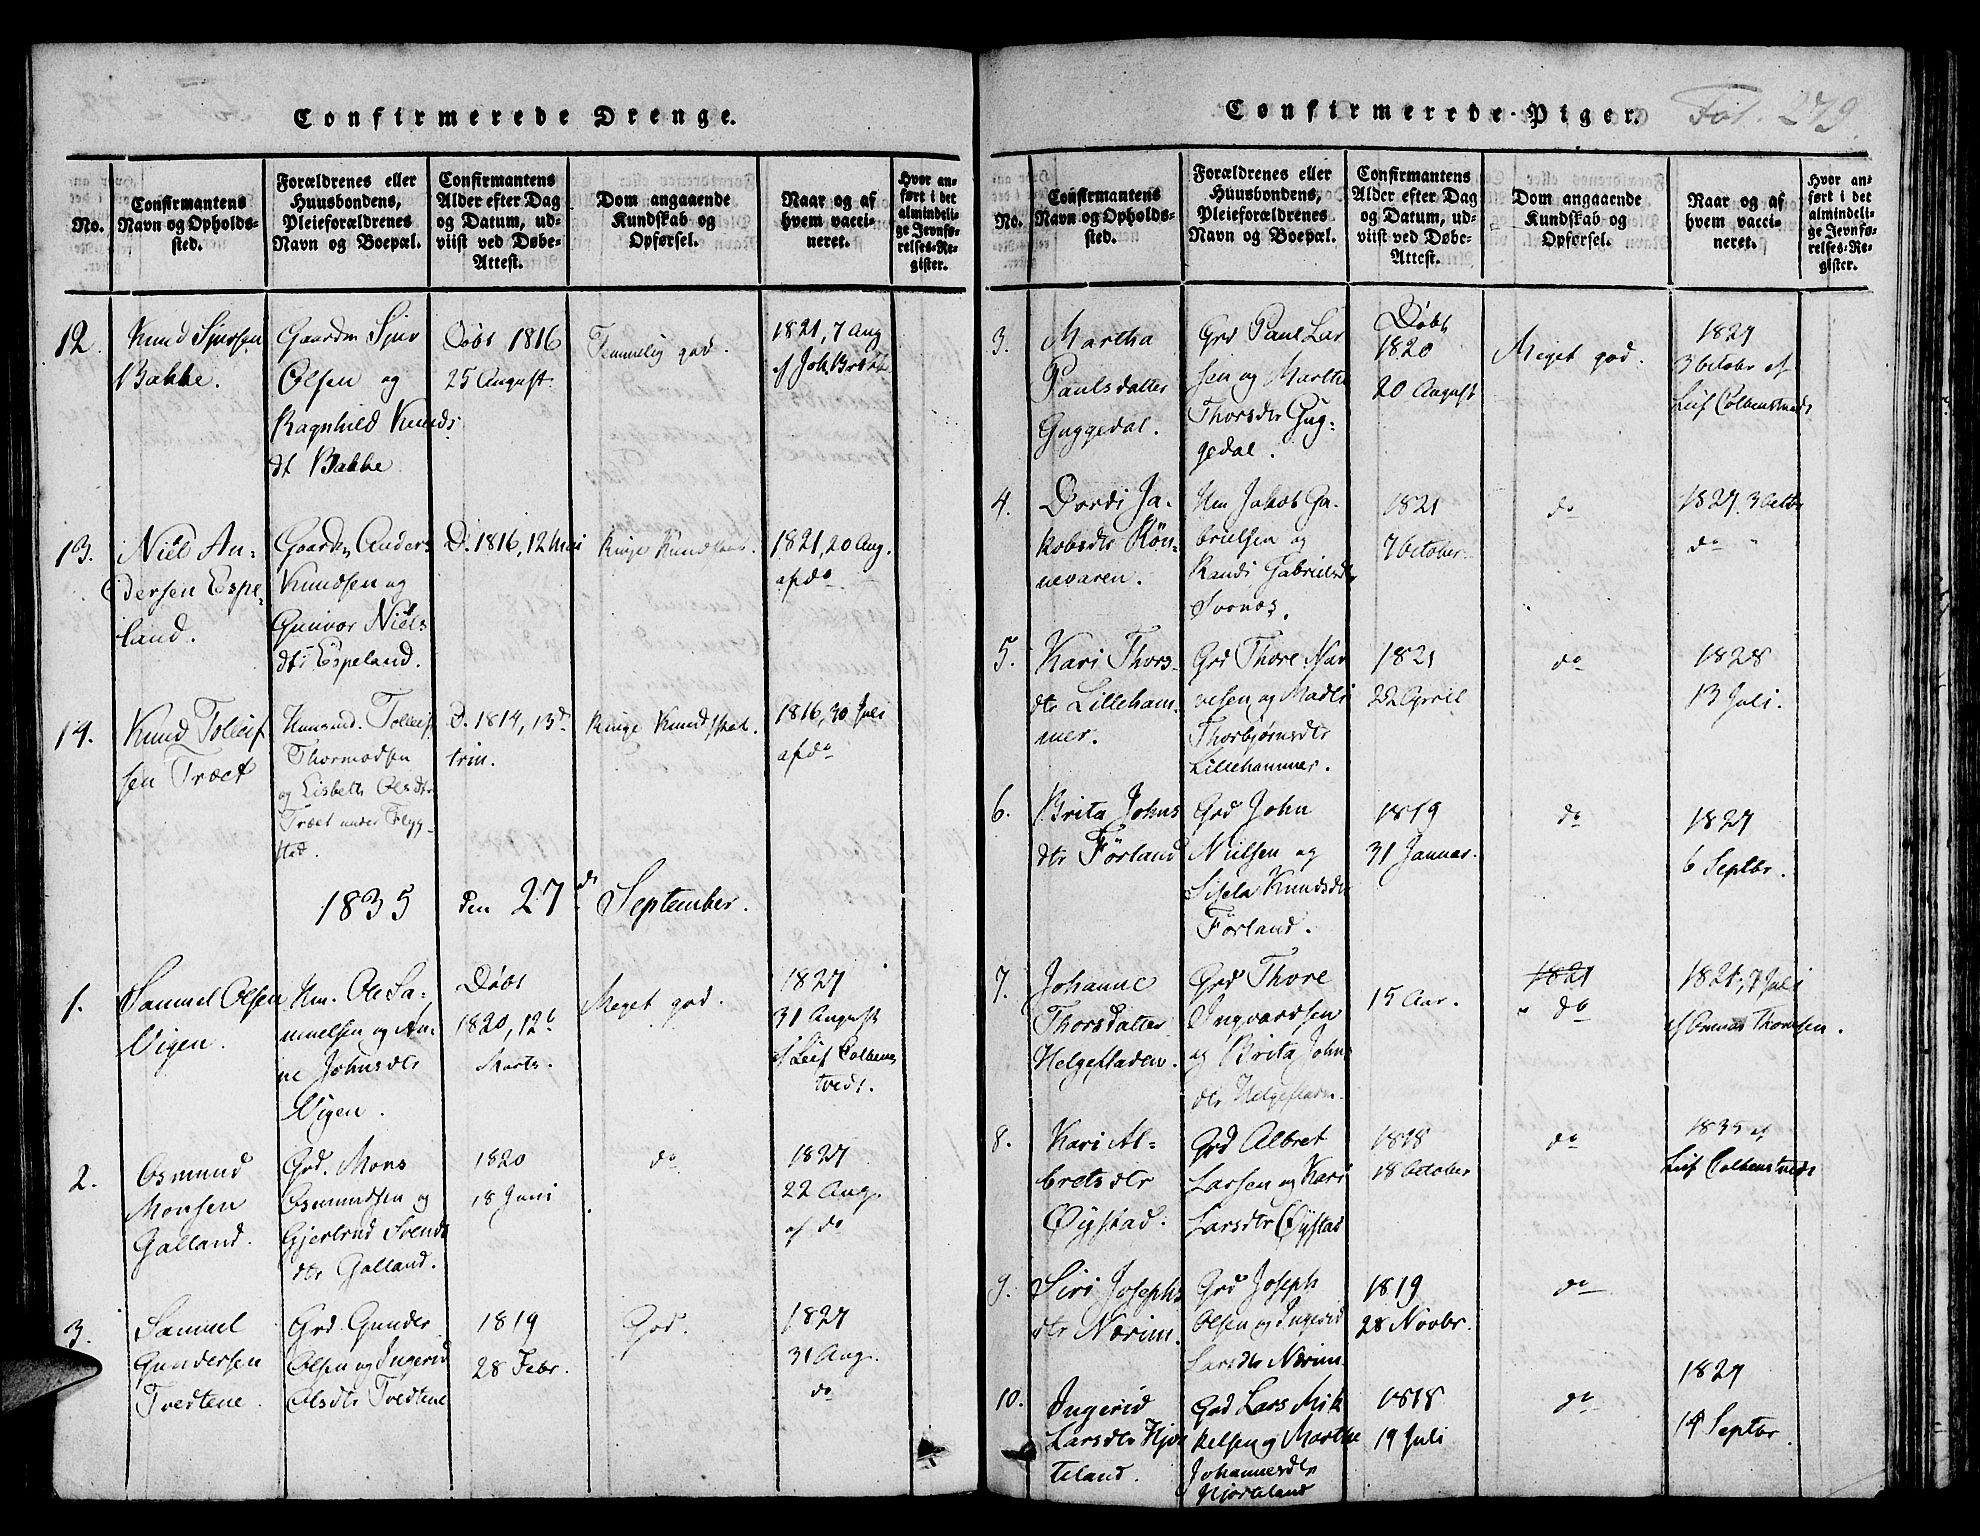 Confirmerede Drenge.
No.
Confirmantens
Navn og Opholds-
sted.
Forældrenes eller
Huusbondens,
Pleieforældrenes
Navn og Boepæl.
Confirmantens
Alder efter Dag
og Datum, ud-
viist ved Døbe-
Attest.
Dom angaaende
Kundskab og
Opførsel.
Naar og af
hvem vacci-
neret.
Hvor an-
ført i det
almindeli-
ge Jevnfø-
relses-Re-
gister.
12.
Knud Sjursen
Bakke.
Gaardm Sjur
Olsen og
Ragnhild Knuds
dt Bakke
Døbt 1816
25 August
Temmelig god.
1821, 7 Aug
af Joh.
13.
Niel An-
dersen Espe-
land.
Gaardm Anders
Knudsen og
Gunvor Niels
dtr Espeland.
D. 1816, 12 Mai
Ringe Kundskab.
1821, 20 Aug.
af do
14.
Knud Tolleif
sen Træet
Huusmd. Tolleif
Thormodsen
og Lisbeth Olsdtr
Træet under Flyg-
stad.
D. 1814, 13de
trin.
Ringe Kundskab.
1816, 30 Juli
af do
1835 den 27de September.
1.
Samuel Olsen
Vigen.
Hm. Ole Sa-
muelsen og An-
ne Johnsdtr
Vigen.
Døbt
1820, 12te
Marts.
Meget god.
1827
31 August
af Leif Colbens
tvedt.
2.
Osmund
Monsen
Galland.
Grd. Mons
Osmundsen og
Gjertrud Svends
dtr Galland.
1820
18 Juni
do
1827
22 Aug.
af do
3.
Samuel
Gundersen
Tvedtene.
Grd. Gunder
Olsen og Ingerid
Olsdtr Tvedtene
1819
28 Febr.
God.
1827
31 Aug.
do
Confirmerede Piger.
Fol. 279.
No.
Confirmantens
Navn og Opholds-
sted.
Forældrenes eller
Huusbondens,
Pleieforældrenes
Navn og Boepæl.
Confirmantens
Alder efter Dag
og Datum, ud-
viist ved Døbe-
Attest.
Dom angaaende
Kundskab og
Opførsel.
Naar og af
hvem vacci-
neret.
Hvor an-
ført i det
almindeli-
ge Jevnfø-
relses-Re-
gister.
3.
Martha
Paulsdatter
Guggedal.
Grd Paul Lar
sen og Marthe
Thorsdtr Gug-
gedal.
Døbt
1820
20 August
Meget god.
1827
3 October af
Leif Colbenstvedt
4.
Dordi Ja-
kobsdtr Rön-
nevaren.
Hm Jakob Ga-
brielsen og
Randi Gabrielsdtr
1821
7 October
do
1827. 3 Octbr
do "
5.
Kari Thors-
dtr Lilleham-
mer.
Grd Thore Nar
vesen og Madli
Thorbjørnsdtr
Lillehammer.
1821
22 April
do
1828
13 Juli.
6.
Brita Johns
dtr Förland
Grd John
Nielsen og
Sisela Knudsdtr
Förland.
1819
31 Januar.
do
1827
6 Septbr.
7.
Johanne
Thorsdatter
Helgestaden.
Grd Thore
Ingvardsen
og Brita Johns
dtr Helgestaden.
15 Aar.
1821
" do
1821, 7 Juli
af Thomsen.
8.
Kari Al-
bretsdtr
Øystad.
Grd Albret
Larsen og Kari
Larsdtr Øystad
1818
18 October
do
1835 af
Leif Colbenstvedt
9.
Siri Josephs
dtr Nærim.
Grd Joseph
Olsen og Ingerid
Larsdtr Nærim
1819
28 Novbr.
do
10.
Ingerid
Larsdtr Hjor
teland.
Grd Lars Mik
kelsen og Marthe
Johannesdtr
Hjorteland
1818
19 Juli
do
1827
14 Septbr.